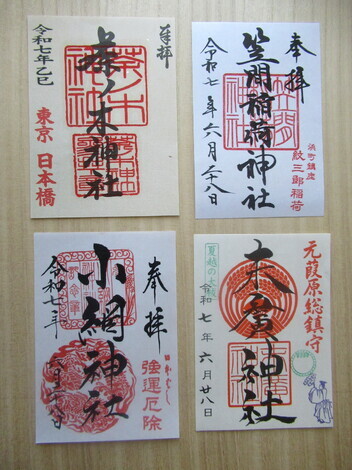 奉拝
茶ノ木神社
令和七年乙巳
東京 日本橋
奉拝
笠間稲荷神社
令和七年六月廿八日
浜町鎮座
紋三郎稲荷
奉拝
小網神社
令和七年
強運厄除
元葭原総鎮守
末廣神社
夏越の大祓
令和七年六月廿八日